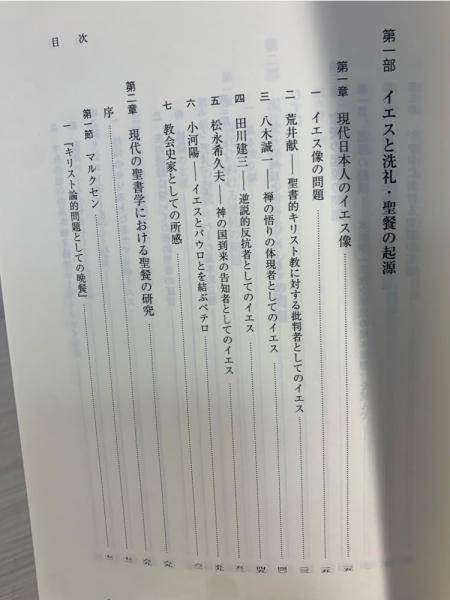 目次
第一部　イエスと洗礼・聖餐の起源
第一章　現代日本人のイエス像
一　イエス像の問題
二　荒井献――聖書的キリスト教に対する批判者としてのイエス
三　八木誠一――禅の悟りの体現者としてのイエス
四　田川建三――逆説的反抗者としてのイエス
五　松永希久夫――神の国到来の告知者としてのイエス
六　小河陽――イエスとパウロとを結ぶペテロ
七　教会史家としての所感
第二章　現代の聖書学における聖餐の研究
序
第一節　マルクセン
一　『キリスト論的問題としての晩餐』